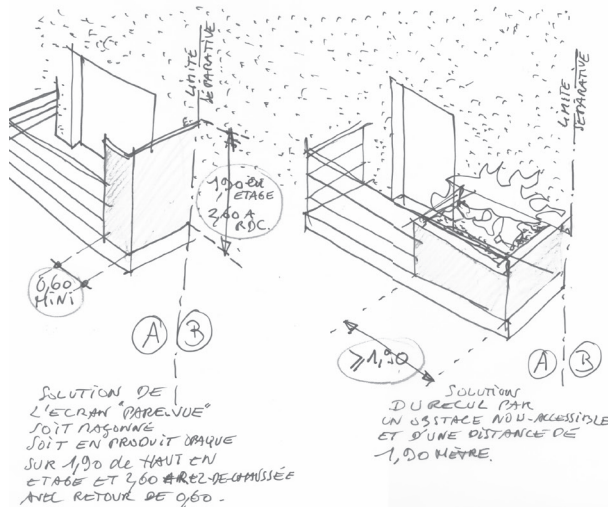 LIMITE
SÉPARATIVE
1,90 EN
ETAGE
2,60 A
RDC.
0,60
MINI
A
B
SOLUTION DE
L'ECRAN "PAREVUE"
SOIT MAÇONNÉ
SOIT EN PRODUIT OPAQUE
SUR 1,90 de HAUT EN
ETAGE ET 2,60 A REZ-DE-CHAUSSÉE
AVEC RETOUR DE 0,60.
LIMITE
SÉPARATIVE
⩾1,90
A
B
SOLUTION
DU RECUL PAR
UN OBSTACLE NON-ACCESSIBLE
ET D'UNE DISTANCE DE
1,90 MÈTRE.